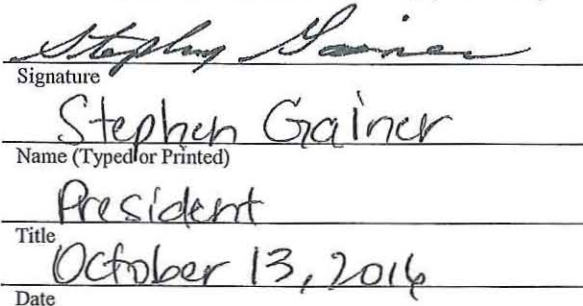 Stephen Gainer
Signature
Stephen Gainer
Name (Typed or Printed)
President
Title
October 13, 2016
Date